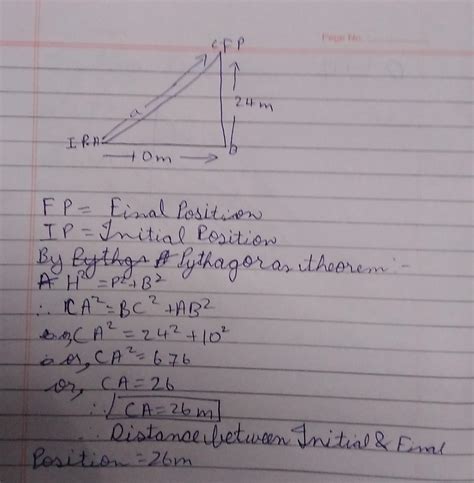 Page No.
C F P
a
24 m
I P A
10m
b
F P = Final Position
I P = Initial Position
By Pythagoras theorem :-
H² = P² + B²
∴ CA² = BC² + AB²
or, CA² = 24² + 10²
or, CA² = 676
or, CA = 26
∴ CA = 26 m
∴ Distance between Initial & Final
Position = 26m